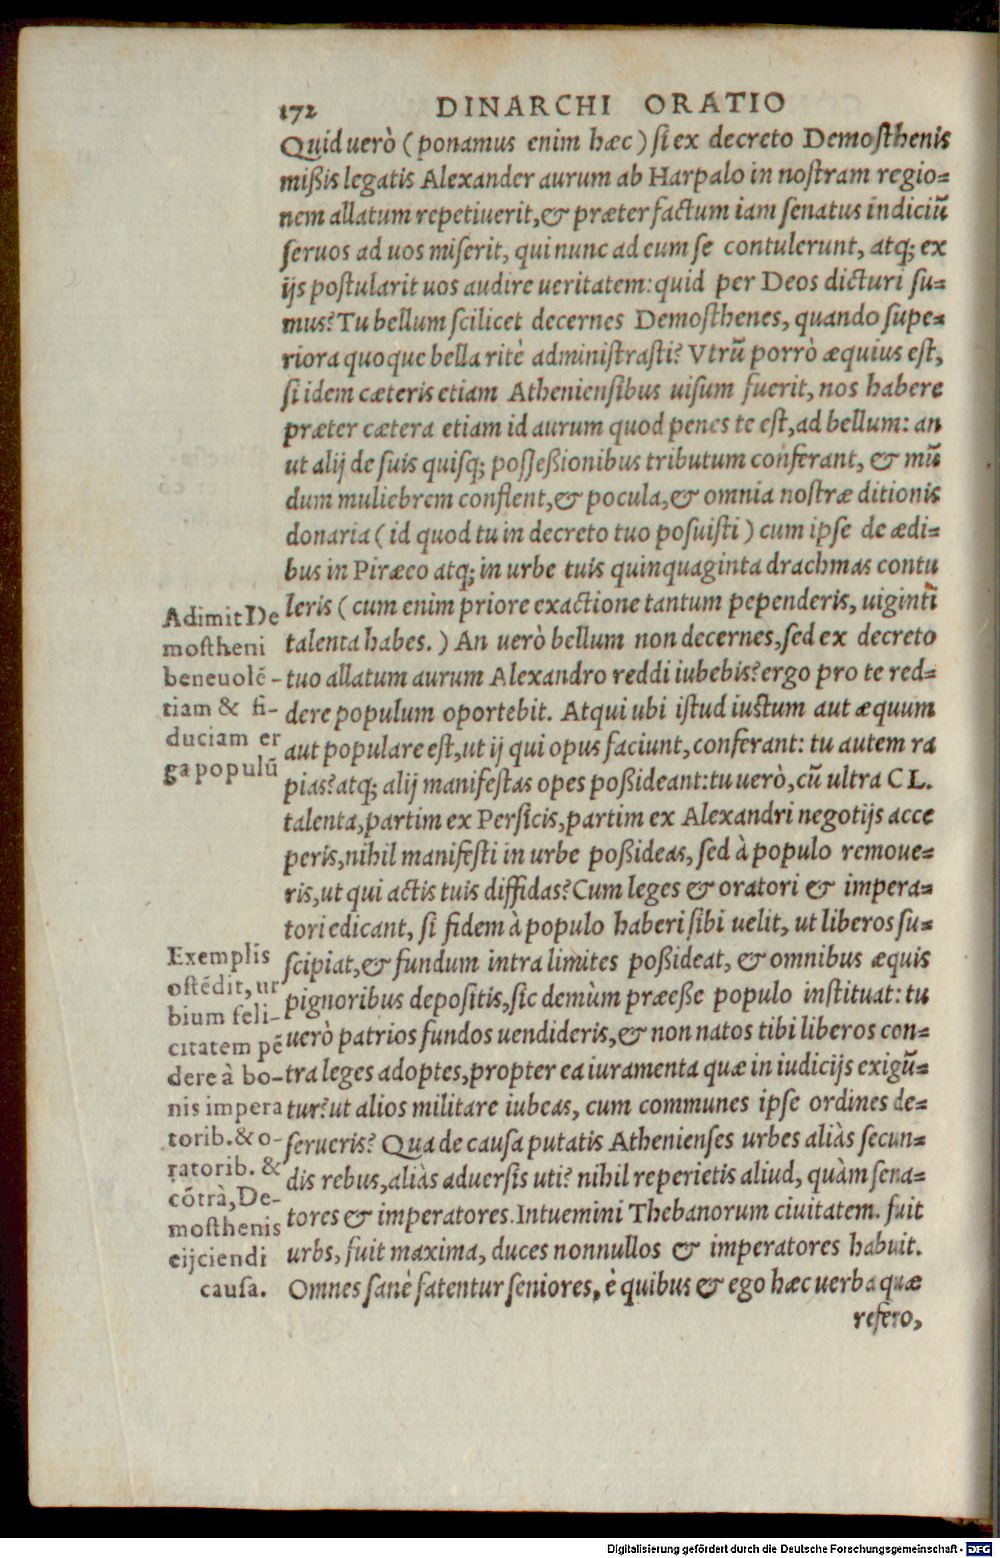 172 DINARCHI ORATIO
Quid uerò (ponamus enim hæc) ſi ex decreto Demoſthenis
mißis legatis Alexander aurum ab Harpalo in noſtram regio=
nem allatum repetiuerit, & præter factum iam ſenatus indiciũ
ſeruos ad uos miſerit, qui nunc ad eum ſe contulerunt, atq; ex
ijs poſtularit uos audire ueritatem: quid per Deos dicturi ſu=
mus? Tu bellum ſcilicet decernes Demoſthenes, quando ſupe=
riora quoque bella ritè adminiſtraſti? Vtrũ porrò æquius eſt,
ſi idem cæteris etiam Athenienſibus uiſum fuerit, nos habere
præter cætera etiam id aurum quod penes te eſt, ad bellum: an
ut alij de ſuis quiſq; poſſeßionibus tributum conferant, & mũ
dum muliebrem conflent, & pocula, & omnia noſtræ ditionis
donaria (id quod tu in decreto tuo poſuiſti) cum ipſe de ædi=
bus in Piræeo atq; in urbe tuis quinquaginta drachmas contu
leris (cum enim priore exactione tantum pependeris, uiginti
talenta habes.) An uerò bellum non decernes, ſed ex decreto
tuo allatum aurum Alexandro reddi iubebis? ergo pro te red=
dere populum oportebit. Atqui ubi iſtud iuſtum aut æquum
aut populare eſt, ut ij qui opus faciunt, conferant: tu autem ra
pias? atq; alij manifeſtas opes poßideant: tu uerò, cũ ultra CL.
talenta, partim ex Perſicis, partim ex Alexandri negotijs acce
peris, nihil manifeſti in urbe poßideas, ſed à populo remoue=
ris, ut qui actis tuis diffidas? Cum leges & oratori & impera=
tori edicant, ſi fidem à populo haberi ſibi uelit, ut liberos ſu=
ſcipiat, & fundum intra limites poßideat, & omnibus æquis
pignoribus depoſitis, ſic demùm præeße populo inſtituat: tu
uerò patrios fundos uendideris, & non natos tibi liberos con=
tra leges adoptes, propter ea iuramenta quæ in iudicijs exigũ=
tur? ut alios militare iubeas, cum communes ipſe ordines de=
ſerueris? Qua de cauſa putatis Athenienſes urbes aliàs ſecun=
dis rebus, aliàs aduerſis uti? nihil reperietis aliud, quàm ſena=
tores & imperatores. Intuemini Thebanorum ciuitatem. fuit
urbs, fuit maxima, duces nonnullos & imperatores habuit.
Omnes ſanè fatentur ſeniores, è quibus & ego hæc uerba quæ
refero,
Adimit De
moſtheni
beneuolẽ-
tiam & fi-
duciam er
ga populũ
Exemplis
oſtẽdit, ur
bium feli-
citatem pẽ
dere à bo-
nis impera
torib. & o-
ratorib. &
cõtrà, De-
moſthenis
eijciendi
cauſa.
Digitalisierung gefördert durch die Deutsche Forschungsgemeinschaft - DFG